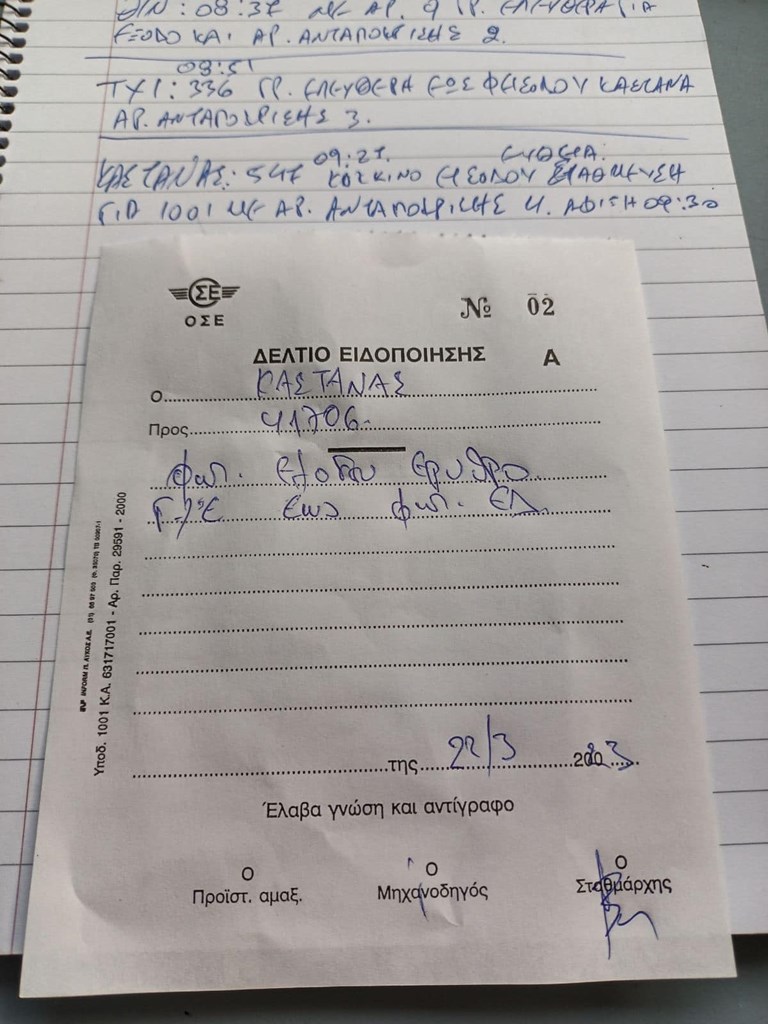 08:37 ΜΕ ΑΡ. 9 ΓΡ. ΕΛΕΥΘΕΡΑ ΓΙΑ
ΕΞΟΔΟ ΚΑΙ ΑΡ. ΑΝΤΑΠΟΚΡΙΣΗΣ 2.
08:51
ΤΧ1: 336 ΓΡ. ΕΛΕΥΘΕΡΑ ΕΩΣ ΦΕΙΣΟΔΟΥ ΚΑΣΤΑΝΑ
ΑΡ. ΑΝΤΑΠΟΚΡΙΣΗΣ 3.
09:27. ΕΥΘΕΙΑ.
ΚΑΣΤΑΝΑΣ: 547 ΚΟΚΚΙΝΟ ΕΙΣΟΔΟΥ ΣΤΑΘΜΕΥΣΗ
ΓΙΑ 1001 ΜΕ ΑΡ. ΑΝΤΑΠΟΚΡΙΣΗΣ 4. ΑΦΙΞΗ 09:30
ΣΕ
ΟΣΕ
№ 02
ΔΕΛΤΙΟ ΕΙΔΟΠΟΙΗΣΗΣ Α
Ο ΚΑΣΤΑΝΑΣ
Προς 41706
φωτ. εξοδου ερυθρο
Γ/Ε εως φωτ. ΕΔ
της 22/3 2023
Έλαβα γνώση και αντίγραφο
Ο
Προϊστ. αμαξ.
Ο
Μηχανοδηγός
Ο
Σταθμάρχης
Υποδ. 1001 Κ.Α. 631717001 - Αρ. Παρ. 29591 - 2000